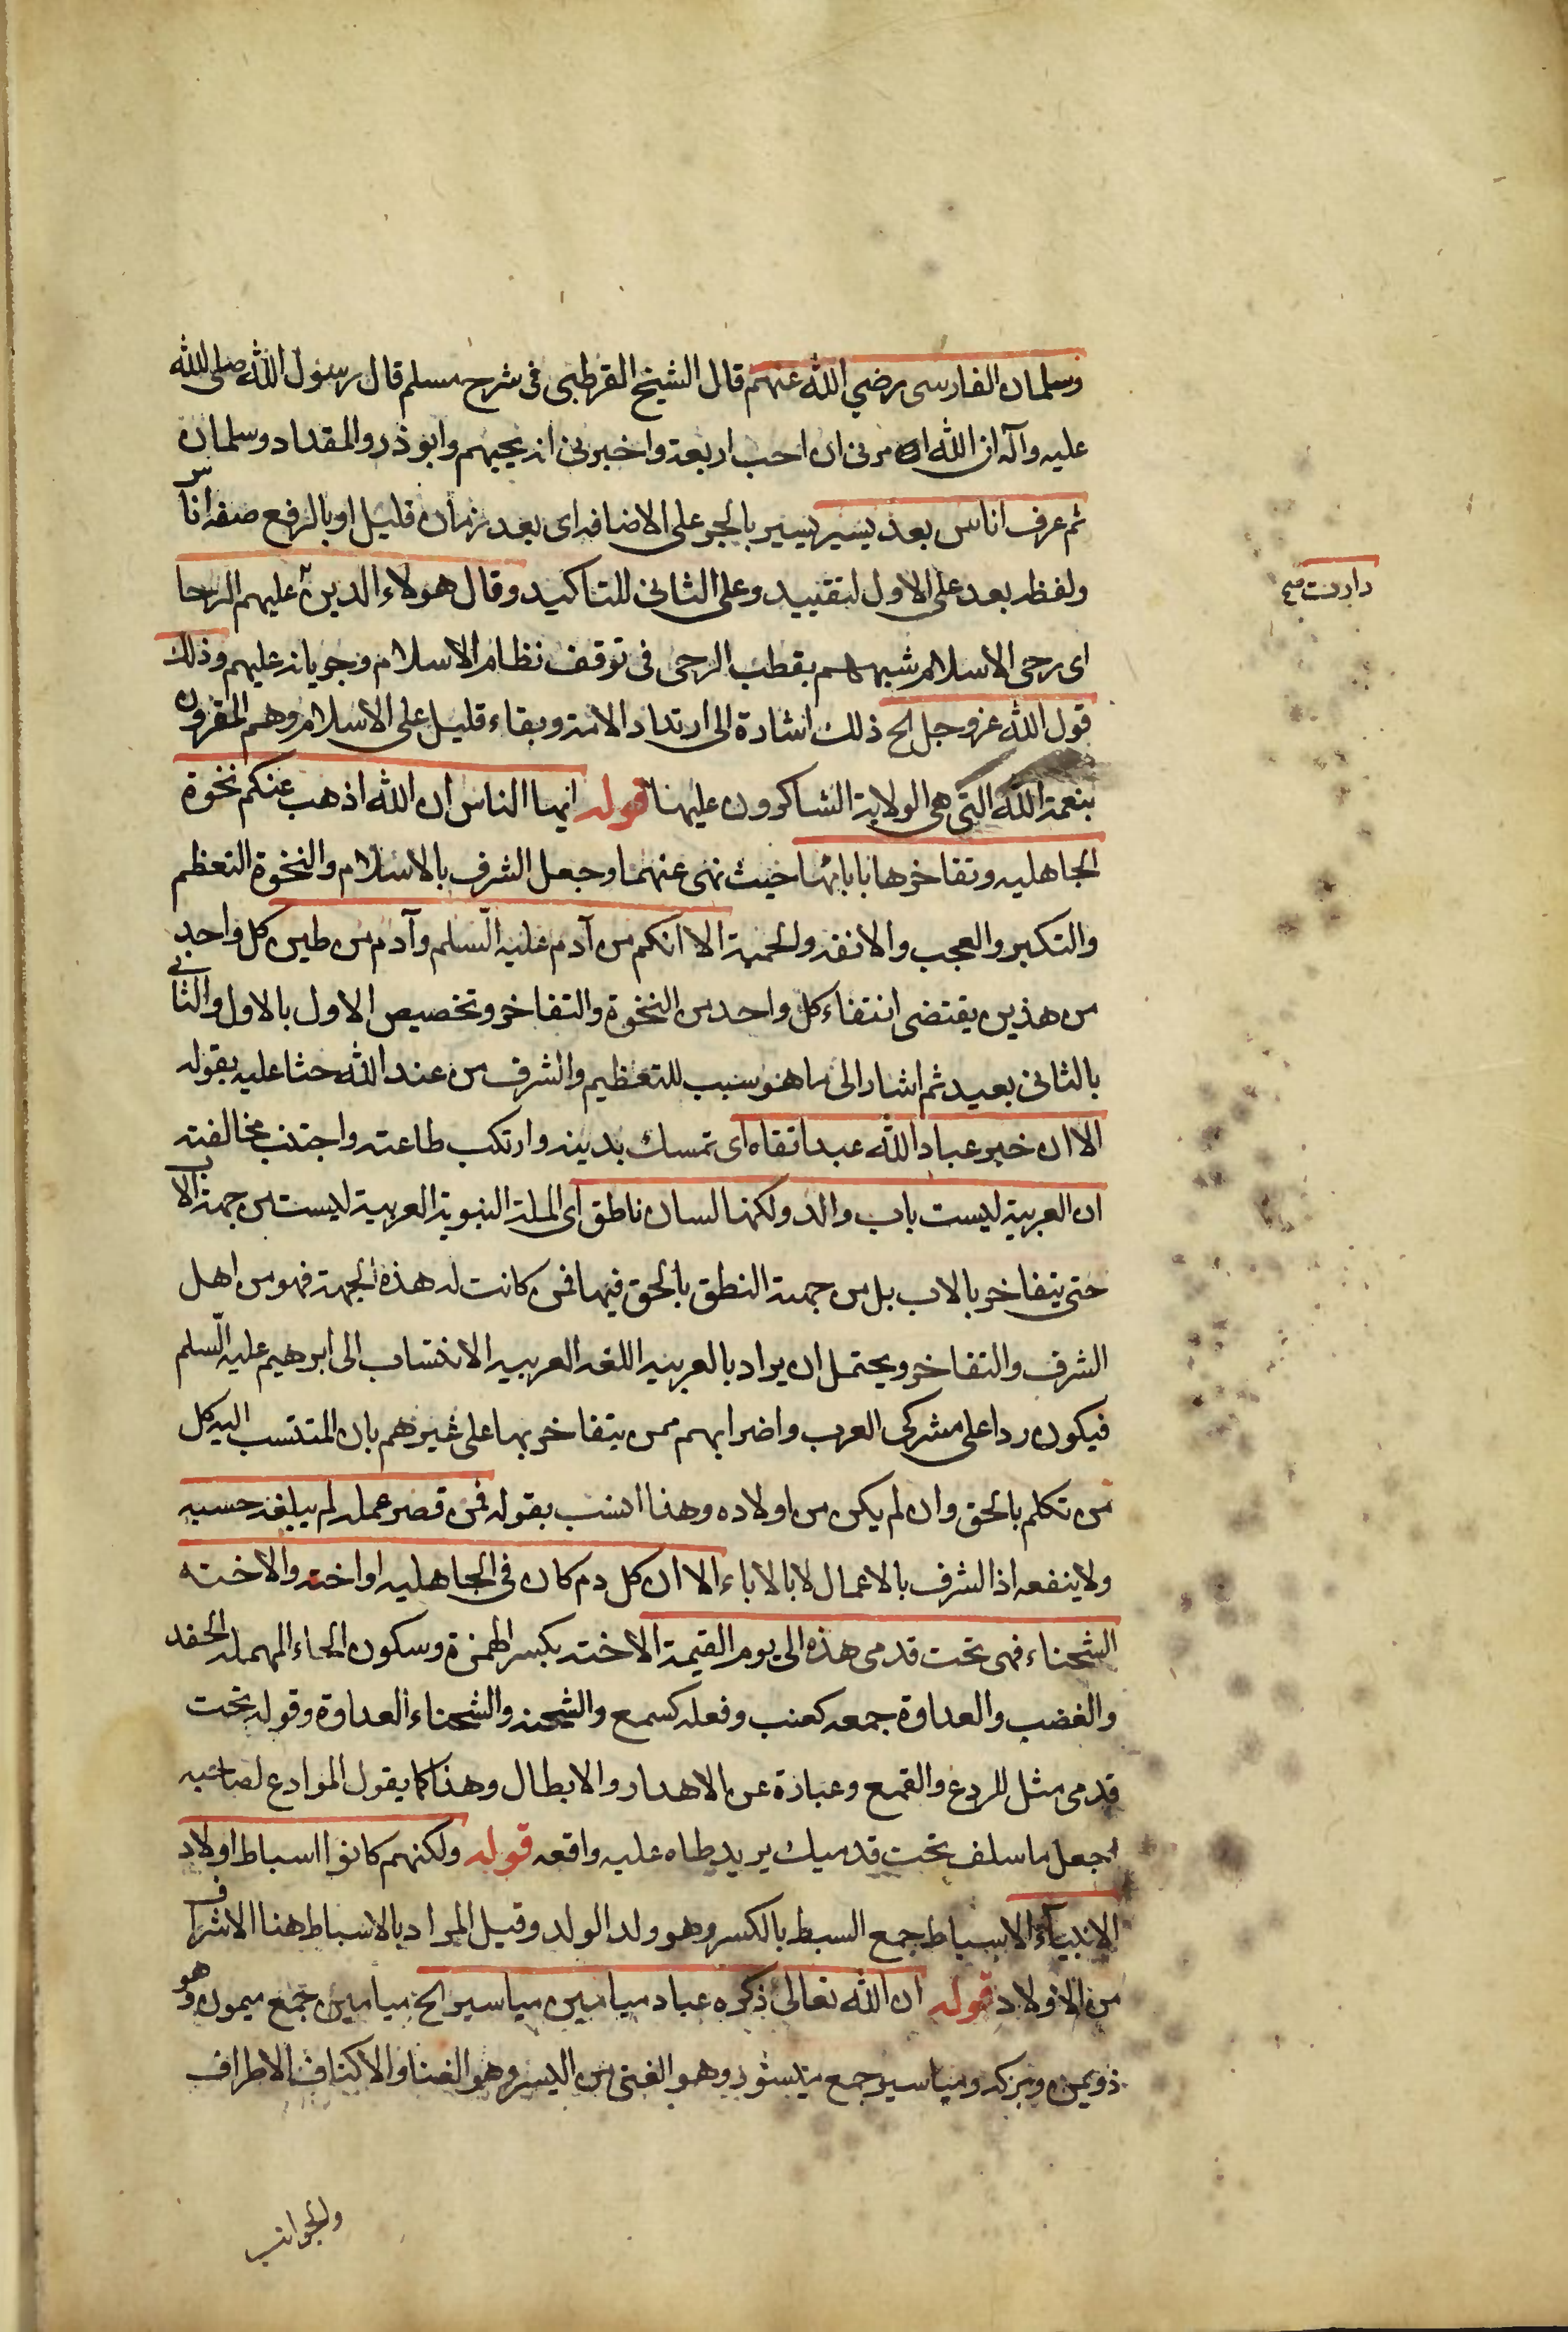 وسلمان الفارسى رضي الله عنهم قال الشيخ القرطبى فى شرح مسلم قال رسول الله صلى الله
عليه وآله ان الله امرنى ان احب اربعة واخبرنى انه يحبهم وابو ذر والمقداد وسلمان
ثم عرف اناس بعد يسير يسير بالجر على الاضافه اى بعد زمان قليل او بالرفع صفه اناس
ولفظ بعد على الاول لتقييد وعلى الثانى للتاكيد وقال هولاء الدين عليهم الرحا
دارت صح
اى رحى الاسلام شبههم بقطب الرحى فى توقف نظام الاسلام وجريانه عليهم وذلك
قول الله عز وجل الخ ذلك اشارة الى ارتداد الامة وبقاء قليل على الاسلام وهم المقرون
بنعمة الله التى هى الولاية الشاكرون عليها قوله ايها الناس ان الله اذهب عنكم نخوة
الجاهليه وتفاخرها بابائها حيث نهى عنهما وجعل الشرف بالاسلام والنخوة التعظم
والتكبر والعجب والانفه والحمية الا انكم من آدم عليه السلم وآدم من طين كل واحد
من هذين يقتضى انتفاء كل واحد من النخوة والتفاخر وتخصيص الاول بالاول والثانى
بالثانى بعيد ثم اشار الى ما هو سبب للتعظيم والشرف من عند الله حثا عليه بقوله
الا ان خير عباد الله عبد اتقاه اى تمسك بدينه وارتكب طاعته واجتنب مخالفته
ان العربية ليست باب والد ولكنها لسان ناطق اى الملة النبوية العربية ليست من جهة الاب
حتى يتفاخر بالاب بل من جهة النطق بالحق فيها فمن كانت له هذه الجهة فهو من اهل
الشرف والتفاخر ويحتمل ان يراد بالعربيه اللغه العربيه الانتساب الى ابرهيم عليه السلم
فيكون ردا على مشركى العرب واضرابهم ممن يتفاخر بها على غيرهم بان المنتسب اليه كل
من تكلم بالحق وان لم يكن من اولاده وهذا انسب بقوله فمن قصر عمله لم يبلغه حسبه
ولا ينفعه اذ الشرف بالاعمال لا بالاباء الا ان كل دم كان فى الجاهليه او احنه والاحنه
الشحناء فهى تحت قدمى هذه الى يوم القيمة الاحنه بكسر الهمزة وسكون الحاء المهمله الحقد
والغضب والعداوة جمعه كعنب وفعله كسمع والشحنه والشحناء العداوة وقوله تحت
قدمى مثل للردع والقمع وعبارة عن الاهدار والابطال وهذا كما يقول الموادع لصاحبه
اجعل ما سلف تحت قدميك يريد طاه عليه واقعه قوله ولكنهم كانوا اسباط اولاد
الانبياء الاسباط جمع السبط بالكسر وهو ولد الولد وقيل المراد بالاسباط هنا الاشراف
من الاولاد قوله ان الله تعالى ذكره عباد ميامين مياسير الخ ميامين جمع ميمون وهو
ذو يمن وبركه ومياسير جمع ميسور وهو الغنى من اليسر وهو الغنا والاكناف الاطراف
والجوانب